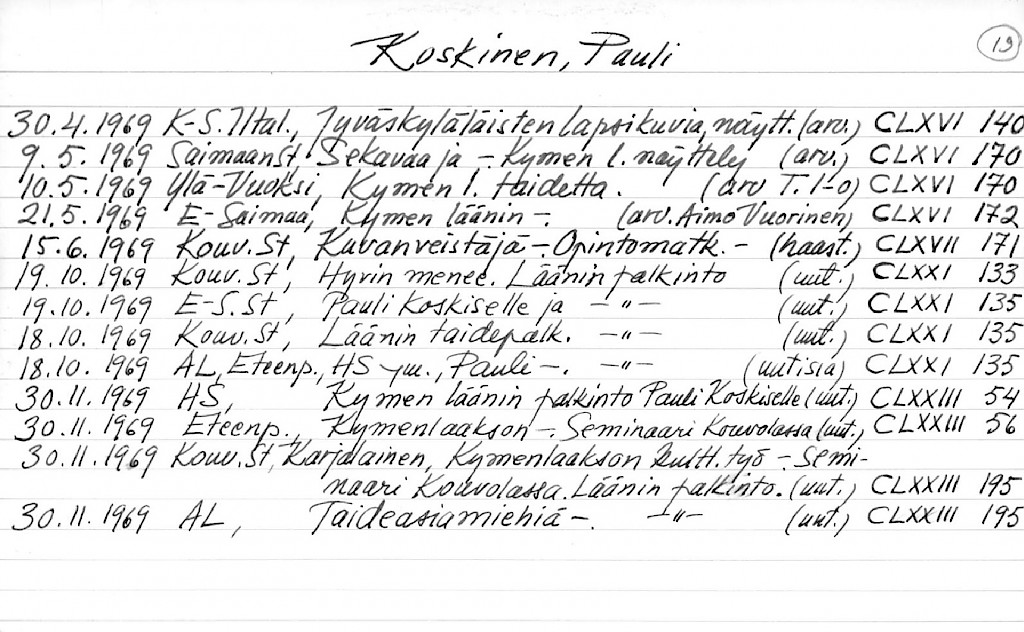 Koskinen, Pauli
19
30.4.1969 K-S. Iltal., Jyväskyläläisten lapsikuvia, näytt. (arv.) CLXVI 140
9.5.1969 SaimaanSt Sekavaa ja - Kymen l. näyttely (arv.) CLXVI 170
10.5.1969 Ylä-Vuoksi, Kymen l. taidetta. (arv T. I-o) CLXVI 170
21.5.1969 E-Saimaa, Kymen läänin -. (arv. Aimo Vuorinen) CLXVI 172
15.6.1969 Kouv.St, Kuvanveistäjä - Opintomatk. - (haast.) CLXVII 171
19.10.1969 Kouv.St, Hyvin menee. Läänin palkinto (uut.) CLXXI 133
19.10.1969 E-S.St, Pauli Koskiselle ja -"- (uut.) CLXXI 135
18.10.1969 Kouv.St, Läänin taidepalk. -"- (uut.) CLXXI 135
18.10.1969 AL, Eteenp., HS ym., Pauli -. -"- (uutisia) CLXXI 135
30.11.1969 HS, Kymen läänin palkinto Pauli Koskiselle (uut.) CLXXIII 54
30.11.1969 Eteenp., Kymenlaakson -. Seminaari Kouvolassa (uut.) CLXXIII 56
30.11.1969 Kouv.St, Karjalainen, Kymenlaakson kultt.työ - Semi-
naari Kouvolassa. Läänin palkinto. (uut.) CLXXIII 195
30.11.1969 AL, Taideasiamiehiä -. -"- (uut.) CLXXIII 195